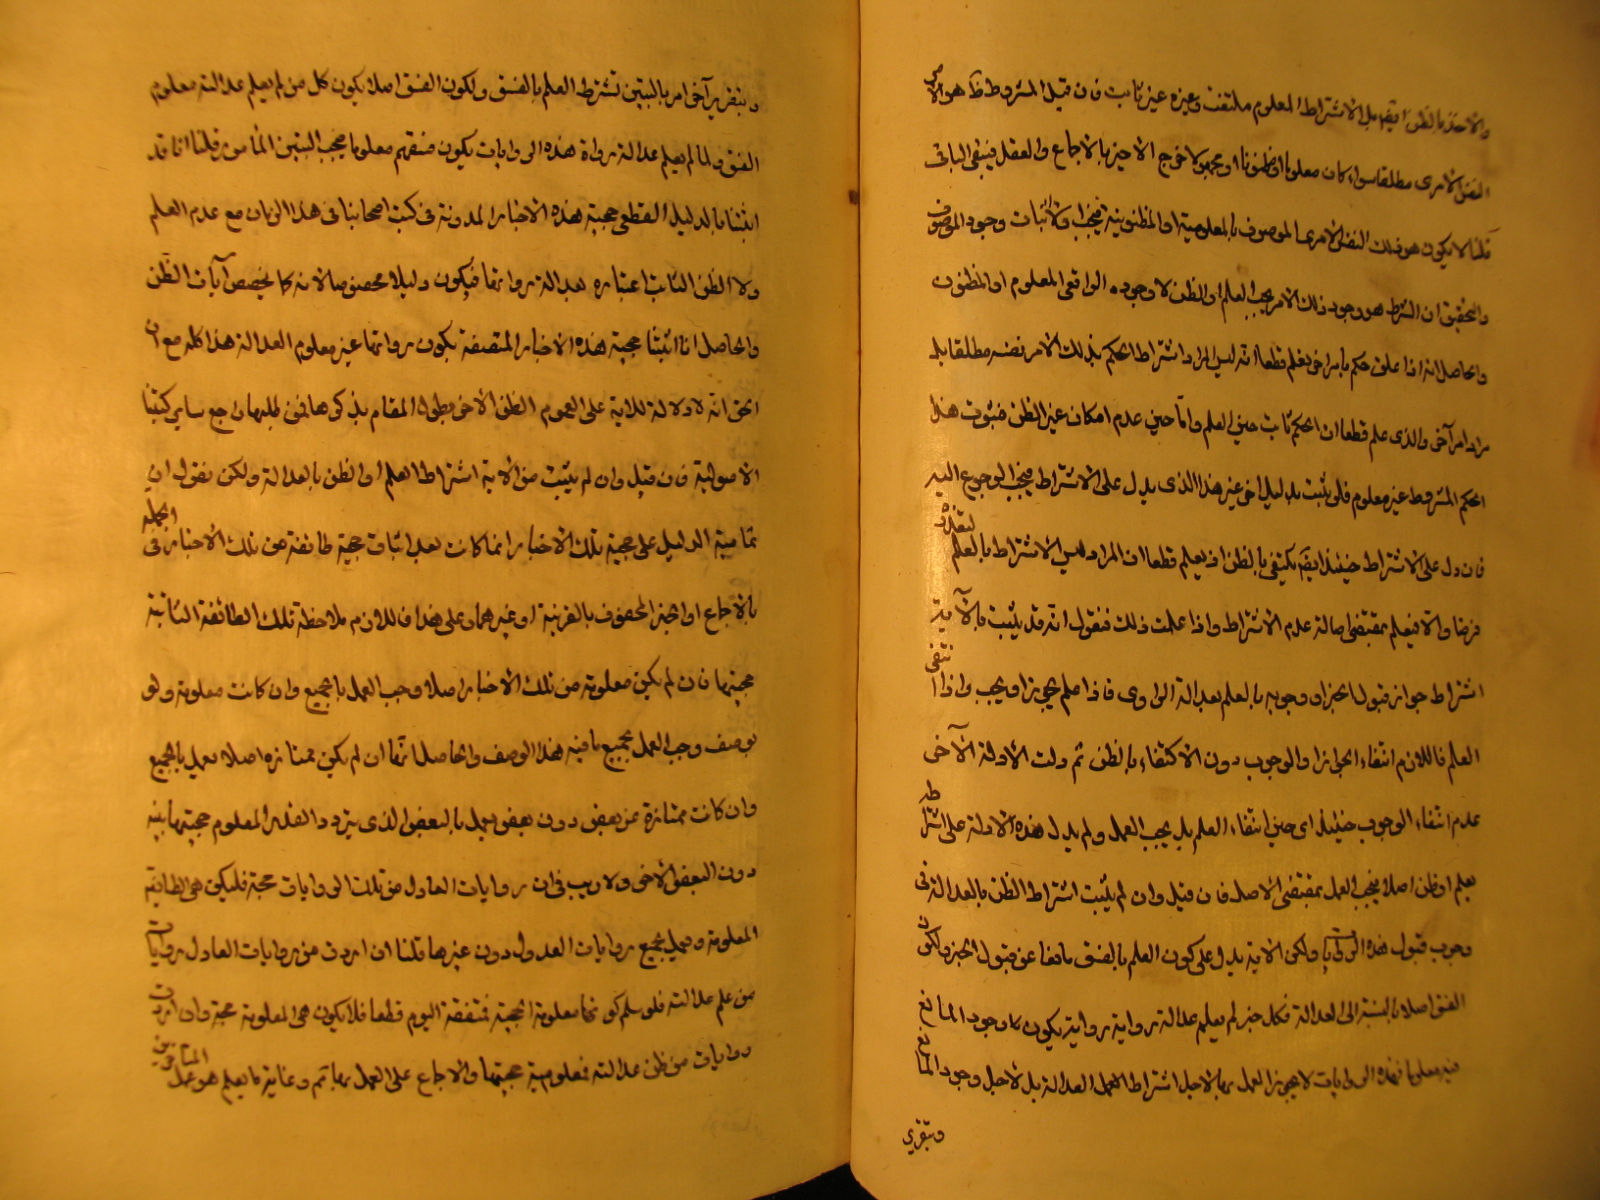 والاخذ بالظن ايضا بل الاشتراط المعلوم ملتفت وغيره غير ثابت فان قيل المشروط ظاهرا هو الامر
النفس الامرى مطلقا سواء كان معلوما او مظنونا او مجهولا خرج الاخير بالاجماع والعقل فيبقى الباقى
قلنا لا يكون هو ذلك النفس الامرى الموصوف بالمعلومية او المظنونية فيجب اثبات وجود الموصوف
والتحقيق ان الشرط هو وجود ذلك الامر بحسب العلم او الظن لا وجوده الواقعى المعلوم او المظنون
والحاصل انه اذا علق حكم بامر اخر يعلم قطعا انه ليس المراد اشتراط الحكم بذلك الامر نفسه مطلقا بل
مراد امر آخر والذى علم قطعا ان الحكم ثابت حين العلم واما حين عدم امكان غير الظن فثبوت هذا
الحكم المشروط غير معلوم فلو يثبت بدليل اخر غير هذا الذى يدل على الاشتراط فيجب الرجوع اليه
فان دل على الاشتراط حينئذ ايضا يكتفى بالظن اذ يعلم قطعا ان المراد ليس الاشتراط بالعلم لتعذره
فرضا والا فيعلم بمقتضى اصالة عدم الاشتراط واذا علمت ذلك فنقول انه قد يثبت بالآية
اشتراط جواز قبول الخبر او وجوبه بالعلم بعدالة الراوى فاذا علم يجوز او يجب واذا انتفى
العلم فاللازم انتفاء الجواز او الوجوب دون الاكتفاء بالظن ثم دلت الأدلة الآخر
عدم انتفاء الوجوب حينئذ اى حين انتفاء العلم بل يجب العمل ولم يدل هذه الادلة على اشتراط
يعلم او ظن اصلا فيجب العمل بمقتضى الاصل فان قيل وان لم يثبت اشتراط الظن بالعدالة فى
وجوب قبول هذه الروايات ولكن الاية يدل على كون العلم بالفسق مانعا عن قبول الخبر ولكون
الفسق اصلا بالنسبة الى العدالة فكل خبر لم يعلم عدالة رواية رواية يكون وجود المانع
فيه معلوما فهذه الروايات لا يجوز العمل بها لا لاجل اشتراط العمل العدالة بل لاجل وجود المانع
وبتقرير
وبتقرير آخر امر بالتبين بشرط العلم بالفسق ولكون الفسق اصلا يكون كل من لم يعلم عدالته معلوم
الفسق ولما لم يعلم عدالة رواة هذه الروايات يكون فسقهم معلوما يجب التبين المأمور قلنا انا قد
اثبتنا بالدليل القطعى حجية هذه الاخبار المدونة فى كتب اصحابنا فى هذا الزمان مع عدم العلم
ولا الظن الثابت اعتباره بعدالة رواتها فيكون دليلا مخصصا لانه كما يخصص آيات الظن
والحاصل انا اثبتنا حجية هذه الاخبار المتصفة بكون رواتها غير معلوم العدالة هذا كله مع ان
الحق انه لا دلالة للاية على العموم الظن الآخر يطول المقام بذكرها فمن طلبها راجع ساير كتبنا
الاصولية فان قيل وان لم يثبت من الاية اشتراط العلم او الظن بالعدالة ولكن نقول ان
تمامية الدليل على حجية تلك الاخبار انما كانت بعد اثبات حجية طائفة من تلك الاخبار فى الجملة
بالاجماع او الخبر المحفوف بالقرينة او غيرهما وعلى هذا فاللازم ملاحظة تلك الطائفة الثابتة
حجيتها فان لم يكن معلومة من تلك الاخبار اصلا وجب العمل بالجميع وان كانت معلومة ولو
بوصف وجب العمل بجميع ما فيه هذا الوصف والحاصل انها ان لم يكن ممتازة اصلا يعمل بالجميع
وان كانت ممتازة عن بعض دون بعض يعمل بالبعض الذى يتردد القدر المعلوم حجيتها بينه
دون البعض الآخر ولا ريب فى ان روايات العادل من تلك الروايات حجة فليكن هى الطائفة
المعلومة ويعمل بجميع روايات العدول دون غيرها قلنا ان اردت من روايات العادل روايات
من علم عدالته فلو سلم كونها معلومة الحجية فمنتفية اليوم قطعا فلا يكون هى المعلومة حجة وان اردت
روايات من ظن عدالته فمعلومية حجيتها والاجماع على العمل بها ثم وغاية ما يعلم هو عمل المتاخرين